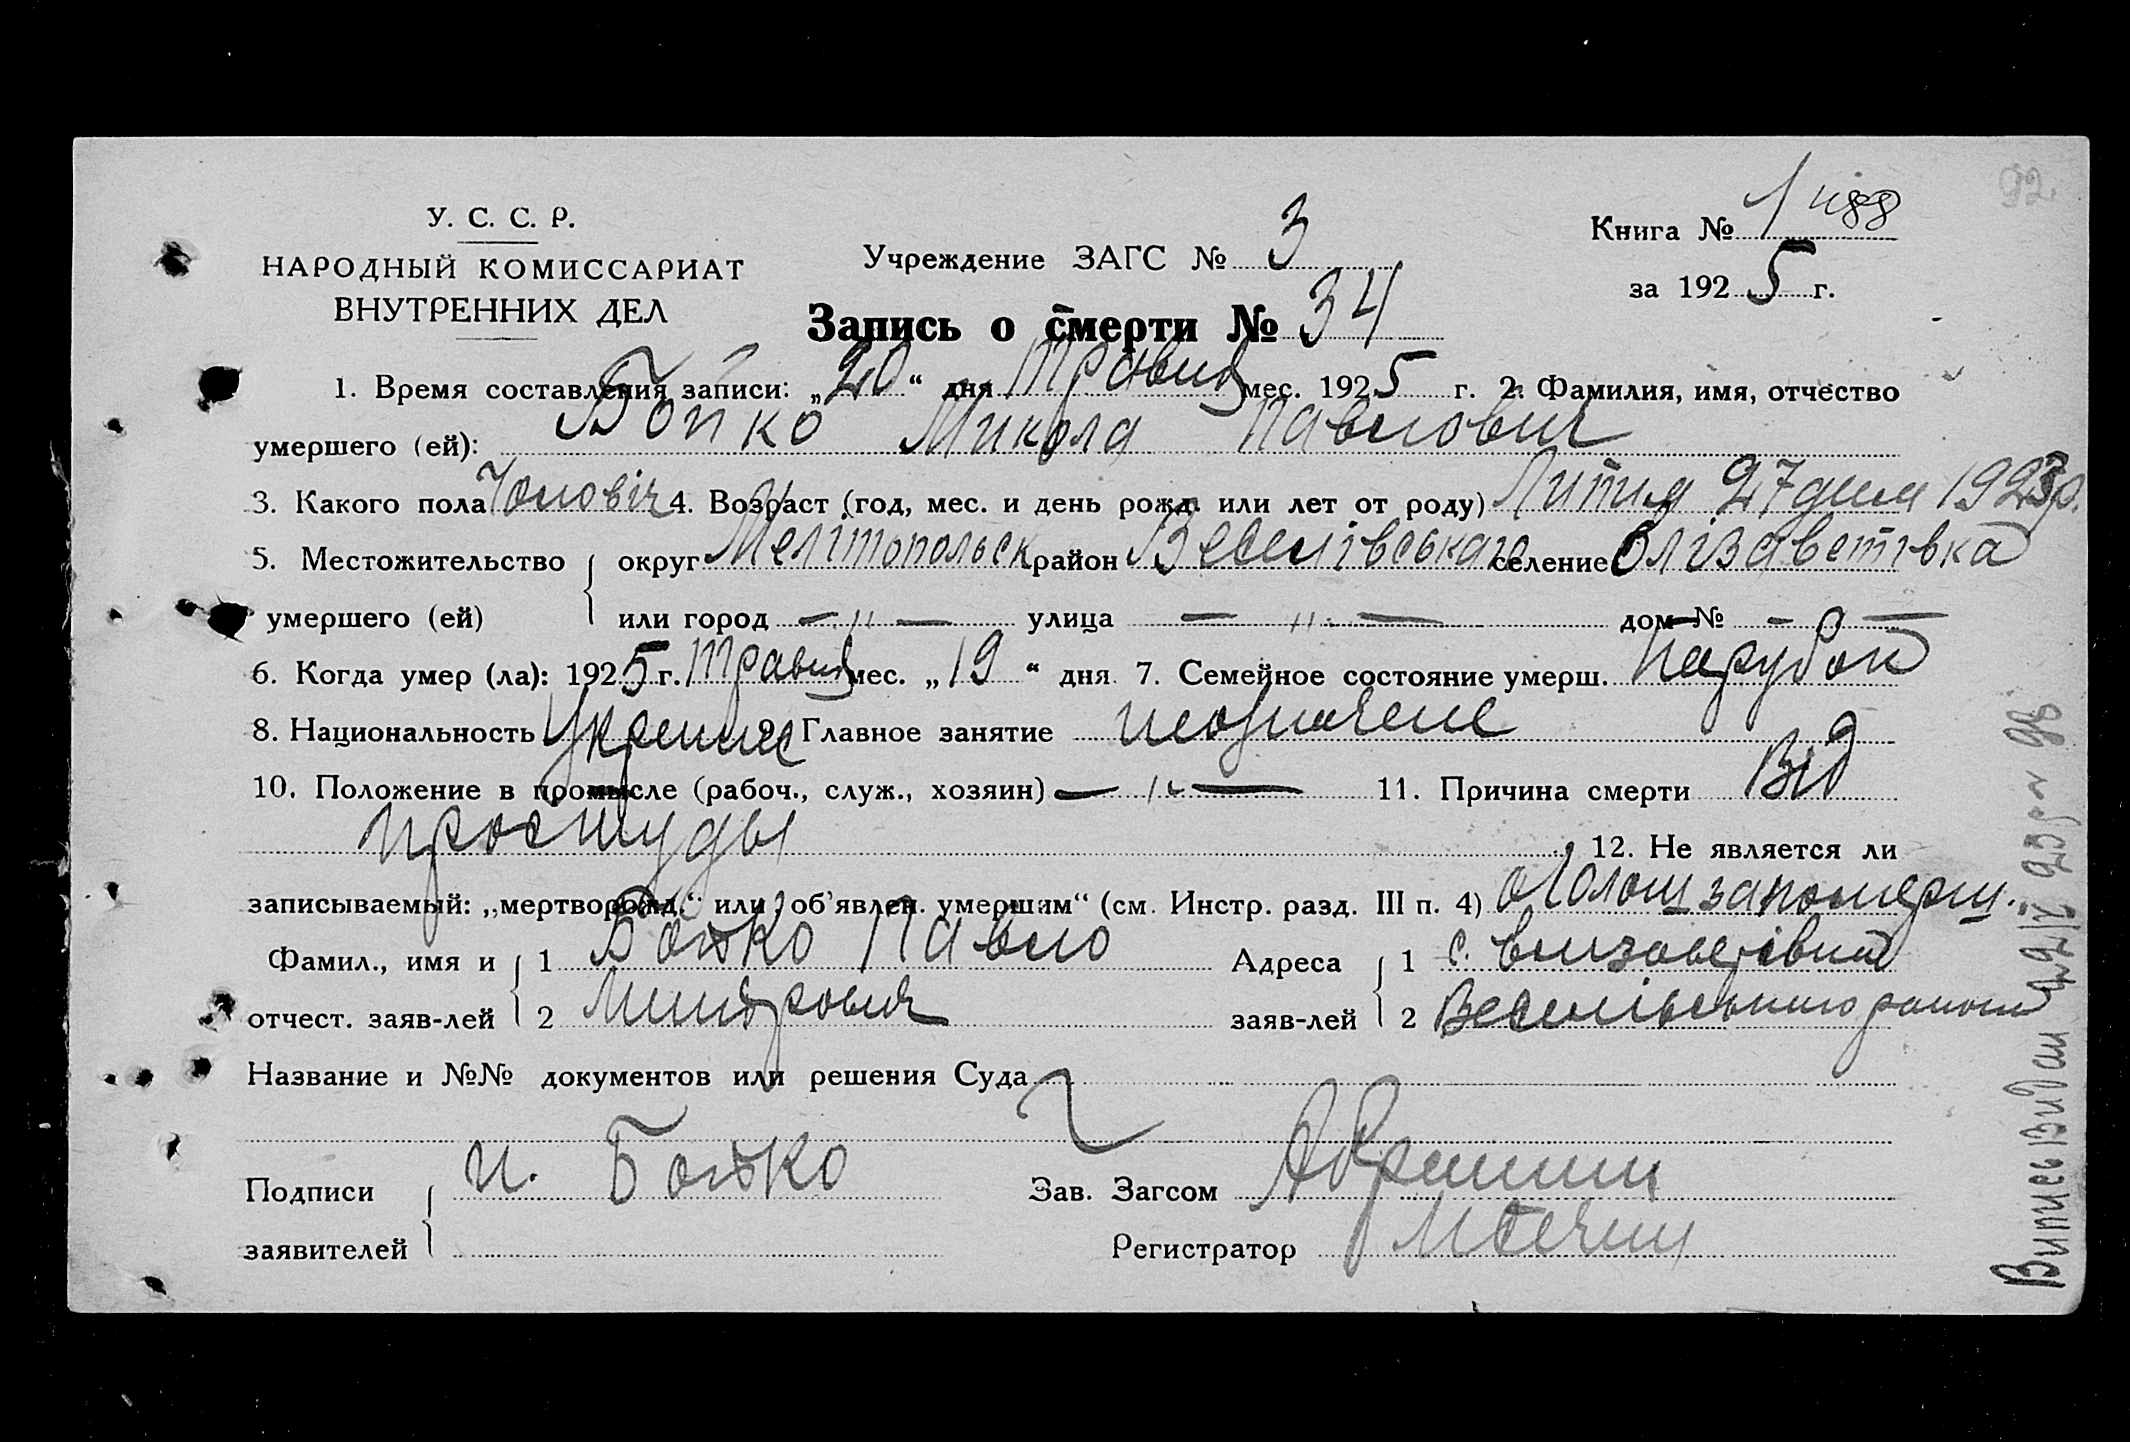 92.
У. С. С. Р.
НАРОДНЫЙ КОМИССАРИАТ
ВНУТРЕННИХ ДЕЛ
Учреждение ЗАГС № 3
Книга № 1
за 1925 г.
Запись о смерти № 34
1. Время составления записи: „20“ дня Травня мес. 1925 г. 2. Фамилия, имя, отчество
умершего (ей): Бойко Микола Павлович
3. Какого пола Чоловіч 4. Возраст (год, мес. и день рожд. или лет от роду) Липня 27 дня 1923 р.
5. Местожительство округ Мелітопольск район Веселівська селение Єлізаветівка
умершего (ей) или город — „ — улица — „ — дом № —
6. Когда умер (ла): 1925 г. Травня мес. „19“ дня 7. Семейное состояние умерш. Парубок
8. Национальность 9. Главное занятие
10. Положение в промысле (рабоч., служ., хозяин) — „ — 11. Причина смерти Від
простуды
12. Не является ли
записываемый: „мертворожд.“ или „об’явлен. умершим“ (см. Инстр. разд. III п. 4)
Фамил., имя и 1 Бойко Павло Адреса 1 с.
отчест. заяв-лей 2 заяв-лей 2 Веселівського району
Название и №№ документов или решения Суда
Подписи Бойко Зав. Загсом
заявителей Регистратор
Випись видан